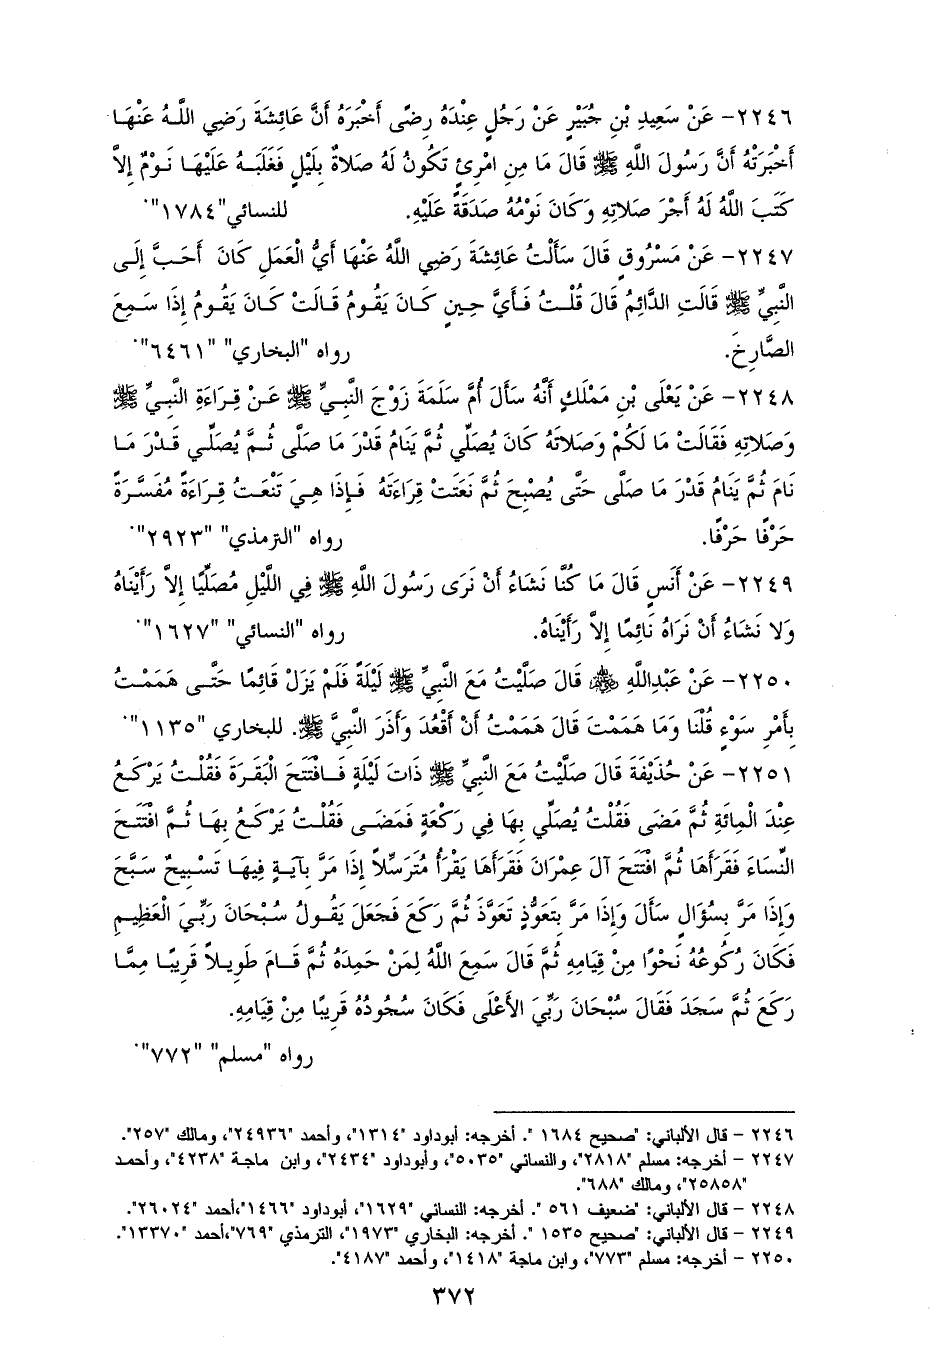 ٢٢٤٦- عَنْ سَعِيدِ بْنِ جُبَيْرٍ عَنْ رَجُلٍ عِنْدَهُ رِضًى أَخْبَرَهُ أَنَّ عَائِشَةَ رَضِي اللَّهُ عَنْهَا
أَخْبَرَتْهُ أَنَّ رَسُولَ اللَّهِ ﷺ قَالَ مَا مِنِ امْرِئٍ تَكُونُ لَهُ صَلاةٌ بِلَيْلٍ فَغَلَبَهُ عَلَيْهَا نَوْمٌ إِلاَّ
كَتَبَ اللَّهُ لَهُ أَجْرَ صَلاتِهِ وَكَانَ نَوْمُهُ صَدَقَةً عَلَيْهِ. للنسائي"١٧٨٤".
٢٢٤٧- عَنْ مَسْرُوقٍ قَالَ سَأَلْتُ عَائِشَةَ رَضِي اللَّهُ عَنْهَا أَيُّ الْعَمَلِ كَانَ أَحَبَّ إِلَى
النَّبِيِّ ﷺ قَالَتِ الدَّائِمُ قَالَ قُلْتُ فَأَيَّ حِينٍ كَانَ يَقُومُ قَالَتْ كَانَ يَقُومُ إِذَا سَمِعَ
الصَّارِخَ. رواه "البخاري" "٦٤٦١".
٢٢٤٨- عَنْ يَعْلَى بْنِ مَمْلَكٍ أَنَّهُ سَأَلَ أُمَّ سَلَمَةَ زَوْجَ النَّبِيِّ ﷺ عَنْ قِرَاءَةِ النَّبِيِّ ﷺ
وَصَلاتِهِ فَقَالَتْ مَا لَكُمْ وَصَلاتَهُ كَانَ يُصَلِّي ثُمَّ يَنَامُ قَدْرَ مَا صَلَّى ثُمَّ يُصَلِّي قَدْرَ مَا
نَامَ ثُمَّ يَنَامُ قَدْرَ مَا صَلَّى حَتَّى يُصْبِحَ ثُمَّ نَعَتَتْ قِرَاءَتَهُ فَإِذَا هِيَ تَنْعَتُ قِرَاءَةً مُفَسَّرَةً
حَرْفًا حَرْفًا. رواه "الترمذي" "٢٩٢٣".
٢٢٤٩- عَنْ أَنَسٍ قَالَ مَا كُنَّا نَشَاءُ أَنْ نَرَى رَسُولَ اللَّهِ ﷺ فِي اللَّيْلِ مُصَلِّيًا إِلاَّ رَأَيْنَاهُ
وَلا نَشَاءُ أَنْ نَرَاهُ نَائِمًا إِلاَّ رَأَيْنَاهُ. رواه "النسائي" "١٦٢٧".
٢٢٥٠- عَنْ عَبْدِاللَّهِ ﷺ قَالَ صَلَّيْتُ مَعَ النَّبِيِّ ﷺ لَيْلَةً فَلَمْ يَزَلْ قَائِمًا حَتَّى هَمَمْتُ
بِأَمْرِ سَوْءٍ قُلْنَا وَمَا هَمَمْتَ قَالَ هَمَمْتُ أَنْ أَقْعُدَ وَأَذَرَ النَّبِيَّ ﷺ. للبخاري "١١٣٥".
٢٢٥١- عَنْ حُذَيْفَةَ قَالَ صَلَّيْتُ مَعَ النَّبِيِّ ﷺ ذَاتَ لَيْلَةٍ فَافْتَتَحَ الْبَقَرَةَ فَقُلْتُ يَرْكَعُ
عِنْدَ الْمِائَةِ ثُمَّ مَضَى فَقُلْتُ يُصَلِّي بِهَا فِي رَكْعَةٍ فَمَضَى فَقُلْتُ يَرْكَعُ بِهَا ثُمَّ افْتَتَحَ
النِّسَاءَ فَقَرَأَهَا ثُمَّ افْتَتَحَ آلَ عِمْرَانَ فَقَرَأَهَا يَقْرَأُ مُتَرَسِّلاً إِذَا مَرَّ بِآيَةٍ فِيهَا تَسْبِيحٌ سَبَّحَ
وَإِذَا مَرَّ بِسُؤَالٍ سَأَلَ وَإِذَا مَرَّ بِتَعَوُّذٍ تَعَوَّذَ ثُمَّ رَكَعَ فَجَعَلَ يَقُولُ سُبْحَانَ رَبِّيَ الْعَظِيمِ
فَكَانَ رُكُوعُهُ نَحْوًا مِنْ قِيَامِهِ ثُمَّ قَالَ سَمِعَ اللَّهُ لِمَنْ حَمِدَهُ ثُمَّ قَامَ طَوِيلاً قَرِيبًا مِمَّا
رَكَعَ ثُمَّ سَجَدَ فَقَالَ سُبْحَانَ رَبِّيَ الأَعْلَى فَكَانَ سُجُودُهُ قَرِيبًا مِنْ قِيَامِهِ.
رواه "مسلم" "٧٧٢".
٢٢٤٦ – قال الألباني: "صحيح ١٦٨٤ ". أخرجه: أبوداود "١٣١٤"، وأحمد "٢٤٩٣٦"، ومالك "٢٥٧".
٢٢٤٧ – أخرجه: مسلم "٢٨١٨"، والنسائي "٥٠٣٥"، وأبوداود "٢٤٣٤"، وابن ماجة "٤٢٣٨"، وأحمد
"٢٥٨٥٨"، ومالك "٦٨٨".
٢٢٤٨ – قال الألباني: "ضعيف ٥٦١ ". أخرجه: النسائي "١٦٢٩"، أبوداود "١٤٦٦"،أحمد "٢٦٠٢٤".
٢٢٤٩ – قال الألباني: "صحيح ١٥٣٥ ". أخرجه: البخاري "١٩٧٣"، الترمذي "٧٦٩"،أحمد "١٣٣٧٠".
٢٢٥٠ – أخرجه: مسلم "٧٧٣"، وابن ماجة "١٤١٨"، وأحمد "٤١٨٧".
٣٧٢